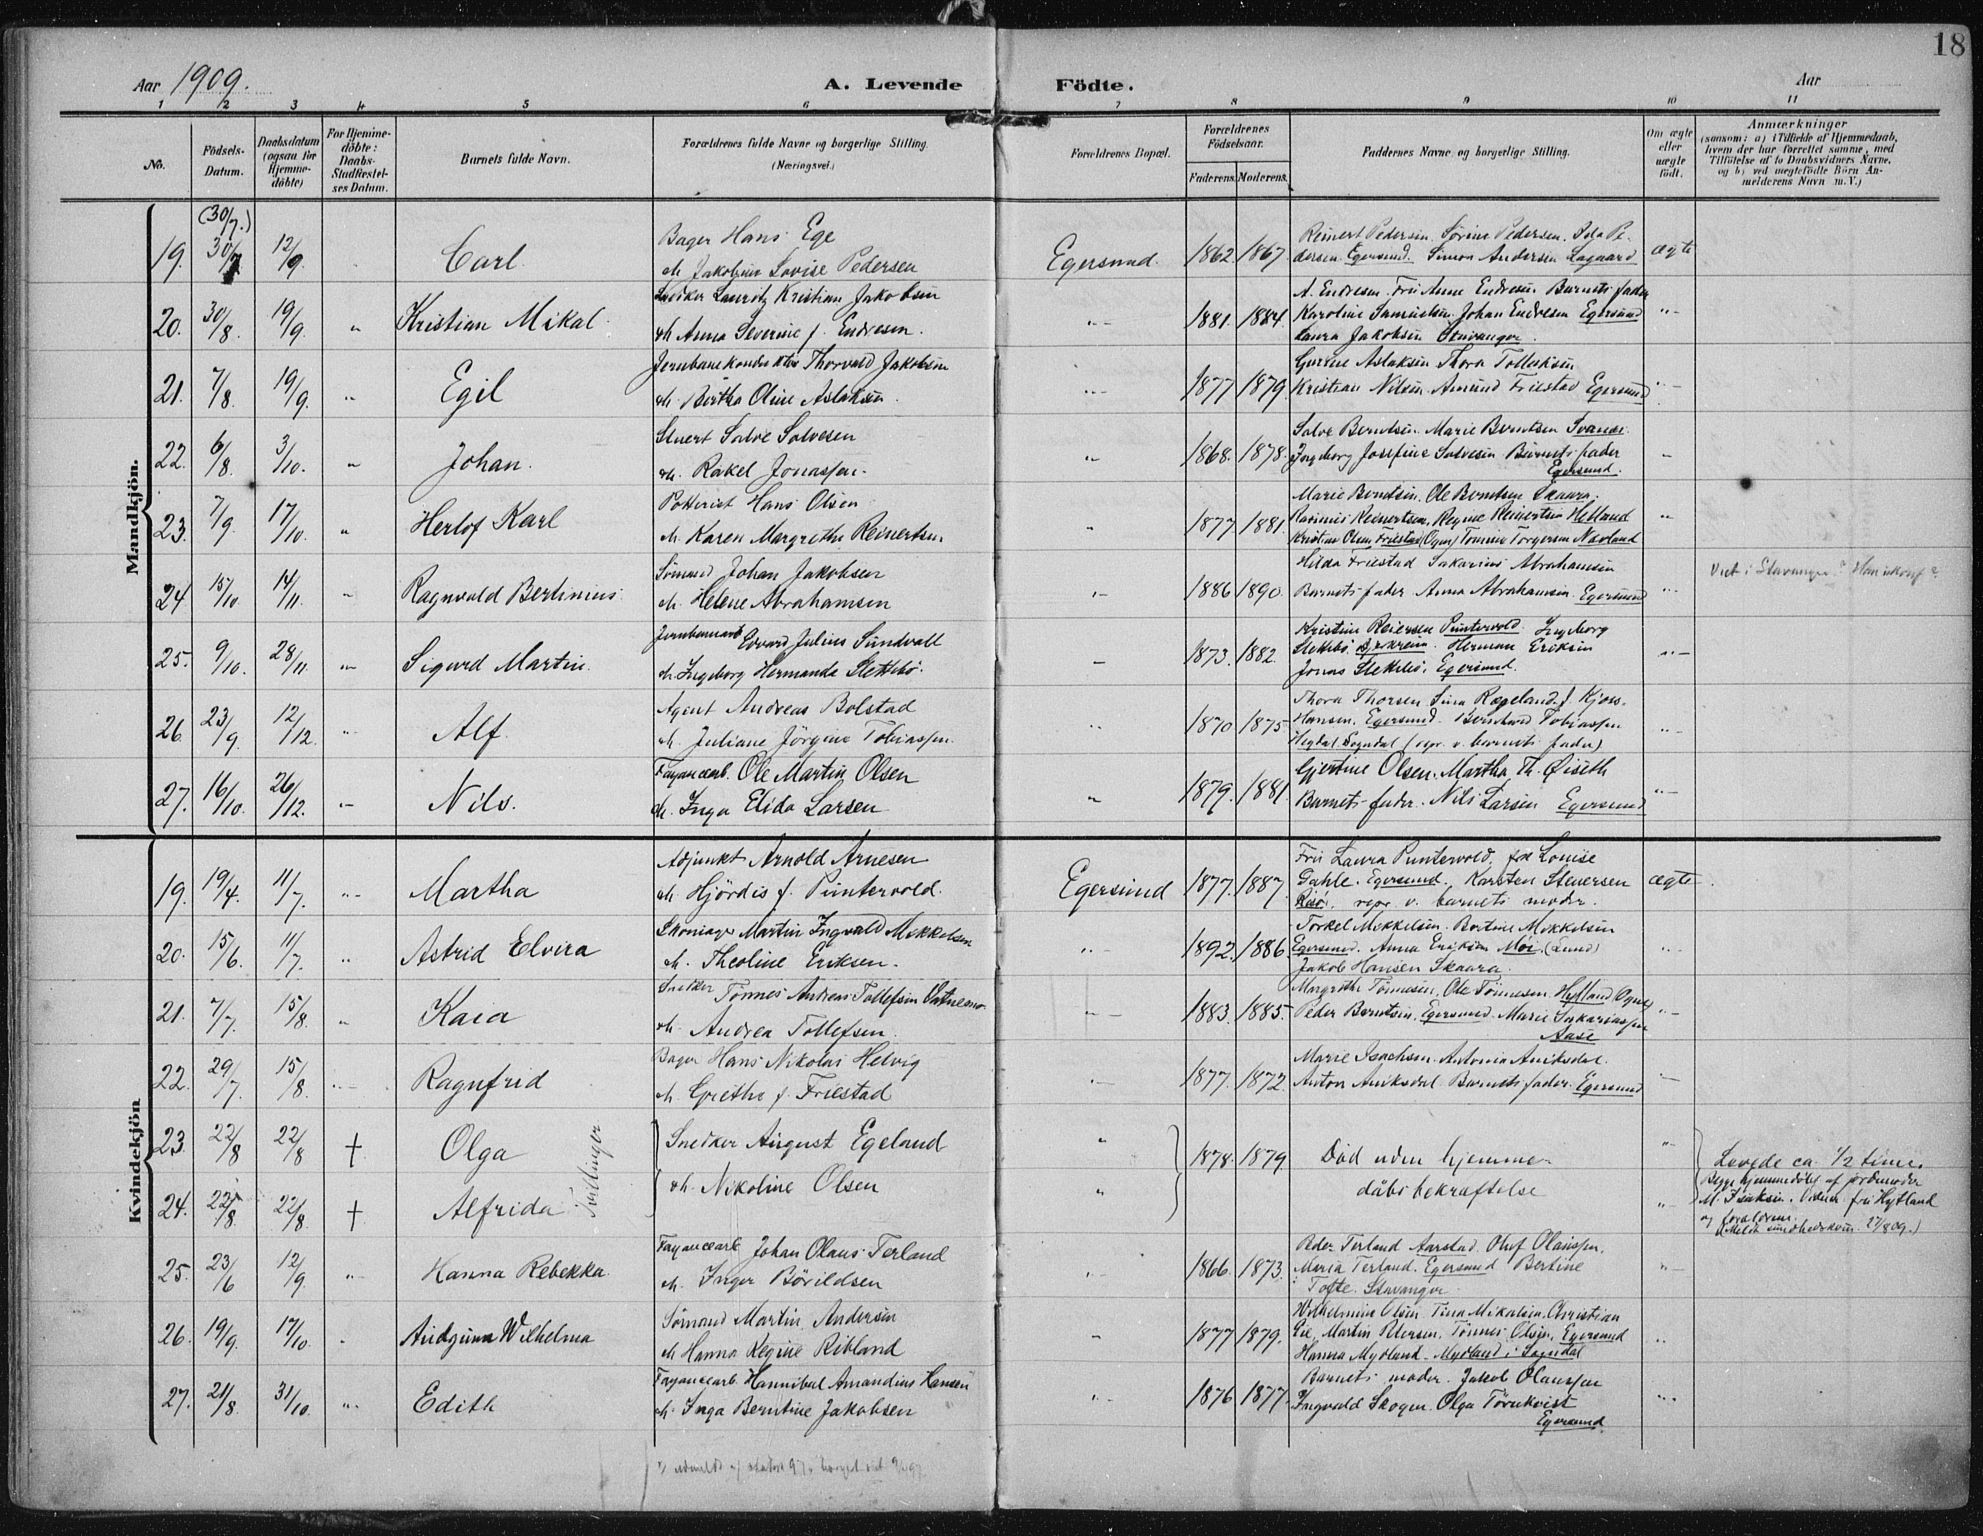 18
Aar 1909.
A. Levende Födte.
Aar
1 2 3 4 5 6 7 8 9 10 11
No.
Födsels-
Datum.
Daabsdatum
(ogsaa for
Hjemme-
döbte)
For Hjemme-
döbte:
Daabs-
Stadfæstel-
ses Datum.
Barnets fulde Navn.
Forældrenes fulde Navne og borgerlige Stilling.
(Næringsvei.)
Forældrenes Bopæl.
Forældrenes
Födselsaar.
Faderens. Moderens.
Faddernes Navne og borgerlige Stilling.
Om ægte
eller
uægte
födt.
Anmærkninger
(saasom: a) i Tilfælde af Hjemmedaab,
hvem der har forrettet samme, med
Tilföielse af to Daabsvidners Navne,
og b) ved uegtefödte Börn An-
meldérens Navn m. V.)
Mandkjön.
(30/7.)
19. 30/7 12/9. Carl.
Bager Hans Ege
m. Jakobine Lovise Pedersen
Egersund. 1862. 1867
Reinert Pedersen. Sørine Pedersen. Ida Pe-
dersen Egersund. Simon Andersen Lagaard
ægte
20. 30/8. 19/9. " Kristian Mikal.
Snedker Lauritz Kristian Jakobsen
m. Anna Severine f. Endresen.
"- 1881. 1884.
A. Endresen. Fru Anne Endresen Barnets fader
Karoline Samuelsen. Johan Endresen Egersund
Laura Jakobsen Stavanger.
"-
21. 7/8. 19/9. " Egil
Jernbanekonduktør Thorvald Jakobsen
m. Bertha Oline Aslaksen.
"- 1877 1879.
Gurine Aslaksen Thora Tollaksen
Kristian Nilsen Amund Friestad Egersund
"-
22. 6/8. 3/10. " Johan.
Stuert Salve Salvesen
m. Rakel Jonassen.
" 1868. 1878.
Salve Berntsen. Marie Berntsen Svanes.
Ingeborg Josefine Salvesen Barnets fader
Egersund.
"
23. 7/9. 17/10. " Herlof Karl
Potterist Hans Olsen
m. Karen Margrethe Reinertsen.
" 1877 1881.
Marie Berntsen. Ole Berntsen Skaara.
Rasmus Reinertsen, Regine Reinertsen Hetland
Kristian Olsen Friestad (Ogne) Tomine Torgersen Nævland
"
24 15/10. 14/11. " Ragnvald Bertinius.
Sømand Johan Jakobsen
m. Helene Abrahamsen
"- 1886 1890.
Hilda Friestad Sakarius Abrahamsen
Barnets fader Anna Abrahamsen. Egersund
"-
25. 9/10. 28/11. " Sigurd Martin.
Jernbanearb. Edvard Julius Sundvall
m. Ingeborg Hermanda Slettebö.
" 1873. 1882.
Kristine Reiersen Puntervold. Ingeborg
Slettebö, Bjerkreim. Herman Eriksen
Jonas Slettebö, Egersund.
"-
26. 23/9. 12/12. " Alf.
Agent Andreas Bolstad
m. Juliane Jörgine Tobiassen.
" 1870 1875
Thora Thorsen Sina Rægeland f. Kjoss-
Hansen. Egersund. Bernhard Tobiassen
Hegdal Sogndal (repr. v. barnets fader)
"
27. 16/10. 26/12. " Nils.
Fayancearb. Ole Martin Olsen
m. Inga Elida Larsen
" 1879. 1881.
Gjertine Olsen. Martha Th. Øiseth
Barnets fader. Nils Larsen Egersund
"-
Kvindekjön
19. 19/4. 11/7. "- Martha
Adjunkt Arnold Arnesen
m. Hjördis f. Puntervold.
Egersund 1877. 1887.
Fru Laura Puntervold. frk Louise
Dahle. Egersund. Karsten Stenersen
Risør, repr. v. barnets moder.
ægte
20. 15/6. 11/7. " Astrid Elvira
Skomager Martin Ingvald Mikkelsen
m. Theoline Eriksen.
" 1892. 1886.
Torkel Mikkelsen. Bertine Mikkelsen
Egersund. Anna Eriksen Moi. (Lund)
Jakob Hansen Skaara.
"
21. 7/7. 15/8. " Kaia
Snedker Tønnes Andreas Tollefsen
m. Andrea Tollefsen.
"- 1883. 1885.
Margrethe Tönnesen, Ole Tönnesen. Hetland (Ogne)
Peder Berntsen, Egersund. Marie Sakariassen
Aase
"-
22. 29/7. 15/8. "- Ragnfrid
Bager Hans Nikolai Helvig
m. Grethe f. Friestad
"- 1877. 1872.
Marie Isachsen. Antonia Aniksdal.
Anton Aniksdal. Barnets fader. Egersund
"
23. 22/8 22/8 † Olga
Snedker August Egeland
m. Nikoline Olsen
" 1878. 1879
Död uden hjemme-
dåbsbekræftelse
"
24. 22/8 22/8 † Alfrida
Tvillinger
Levede ca. 1/2 time.
Begge hjemmedöbt af jordemoder
M. Isaksen. Vidner fru Hytland
og forældrene.
(Meldt sundhedskom. 27/8 09.)
25. 23/6 12/9. " Hanna Rebekka.
Fayancearb. Johan Olaus Terland
m. Inger Bövildsen
"- 1866. 1873.
Peder Terland Aarstad. Oluf Olaussen.
Maria Terland. Egersund Bertine
Tofte. Stavanger.
"
26. 19/9. 17/10. " Audgunn Wilhelma
Sømand Martin Andersen
m Hanna Regine Ribland
" 1877 1879.
Wilhelmine Olsen. Tina Mikalsen. Christian
Martin Petersen. Tönnes Olsen, Egersund
Hanna Mydland. Mydland i Sogndal
"
27. 21/8. 31/10. " Edith
Fayancearb. Hannibal Amandius Hansen
m. Inga Berntine Jakobsen
"- 1876 1877.
Barnets moder. Jakob Olaussen
Ingvald Skogen. Olga Törnkvist
Egersund
"-